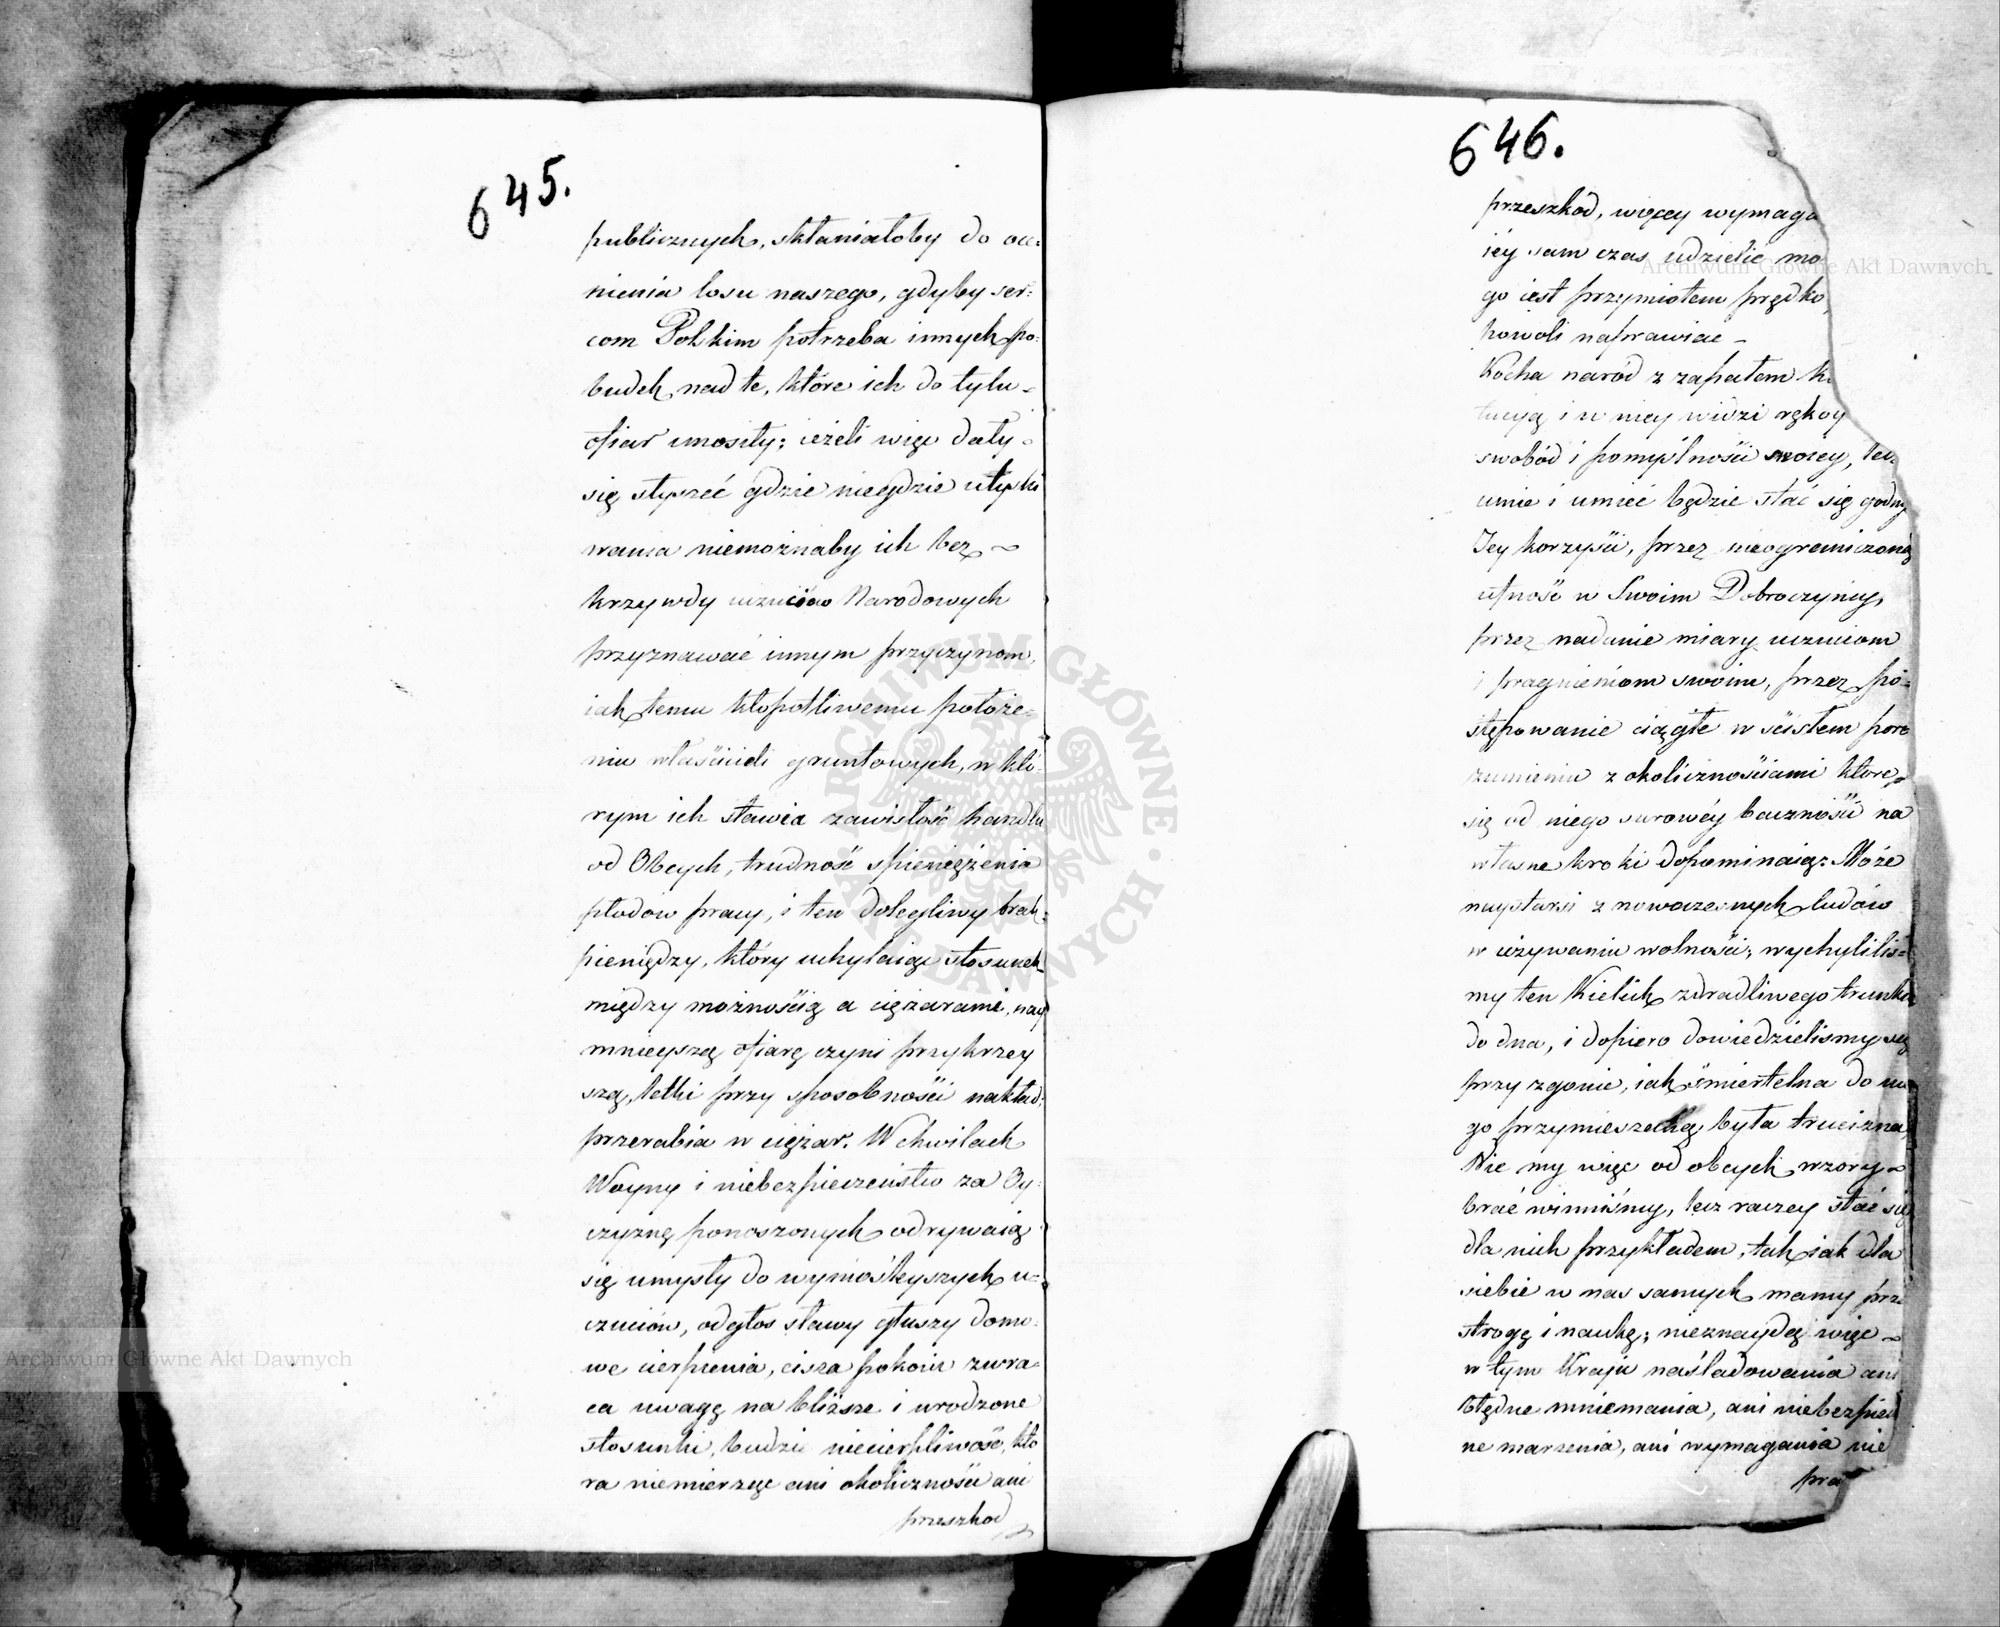 645.
publicznych, skłaniałoby do oce:
nienia losu naszego, gdyby ser:
com Polskim potrzeba innych po:
budek nad te, które ich do tylu
ofiar unosiły; ieżeli więc dały
się słyszeć gdzie niegdzie utyski
wania niemożnaby ich bez
krzywdy uczuciów Narodowych
przyznawać innym przyczynom,
iak temu kłopotliwemu położe:
niu właścicieli gruntowych, w któ:
rym ich stawia zawisłość handlu
od Obcych, trudność spieniężenia
płodów pracy, i ten dolegliwy brak
pieniędzy, który uchylaiąc stosunek
między możnością a ciężarami, nay
mnieyszą ofiarę czyni przykrzey
szą, letki przy sposobności nakład,
przerabia w ciężar. W chwilach
Woyny i niebezpieczeństw za Oy:
czyznę ponoszonych odrywaią
się umysły do wyniośleyszych u:
czuciów, odgłos sławy głuszy domo:
we cierpienia, cisza pokoiu zwra:
ca uwagę na bliższe i urodzone
stosunki, budzi niecierpliwość, któ
ra niemierząc ani okoliczności ani
przeszkod
646.
przeszkód, więcey wymaga
iéy sam czas udzielić mo
go iest przymiotem prędko
powoli naprawiac
Kocha naród z zapałem k
tucyą i w niey widzi rękoy
swobód i pomyślności swoiey, lecz
umie i umieć będzie stać się godny
Jey korzyści, przez nieograniczoną
ufność w Swoim Dobroczyńcy,
przez nadanie miary uczuciom
i pragnieniom swoim, przez po:
stępowanie ciągłe w ścisłem poro
zumieniu z okolicznościami które
się od niego surowéy baczności na
własne kroki dopominaią: Może
naystarsi z nowoczesnych ludów
w używaniu wolności; wychylilis:
my ten Kielich zdradliwego trunku
do dna, i dopiero dowiedzielismy się
przy zgonie, iak śmiertelna do
go przymieszaną była trucizna,
Nie my więc od obcych wzory
brać winniśmy, lecz raczey stać się
dla nich przykładem, tak iak dla
siebie w nas samych mamy prze
strogę i naukę; nieznaydą więc
w tym Kraju naśladowania ani
błędne mniemania, ani niebezpiecz
ne marzenia, ani wymagania nie
pra
Archiwum Główne Akt Dawnych
Archiwum Główne Akt Dawnych
ARCHIWUM GŁÓWNE AKT DAWNYCH